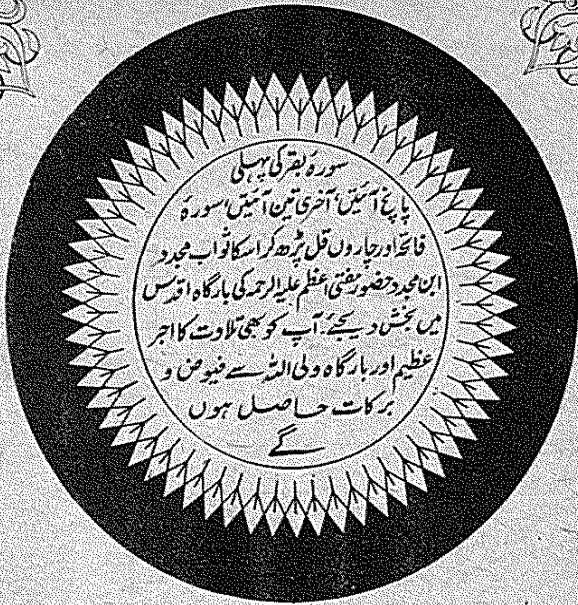 سورہ بقر کی پہلی
پانچ آئتیں، آخری تین آئتیں، سورۂ
فاتحہ اور چاروں قل پڑھ کر اسکا ثواب مجدد
ابن مجدد حضور مفتی اعظم علیہ الرحمہ کی بارگاہ اقدس
میں بخش دیجئے۔ آپ کو بھی تلاوت کا اجر
عظیم اور بارگاہ ولی اللہ سے فیوض و
برکات حاصل ہوں
گے